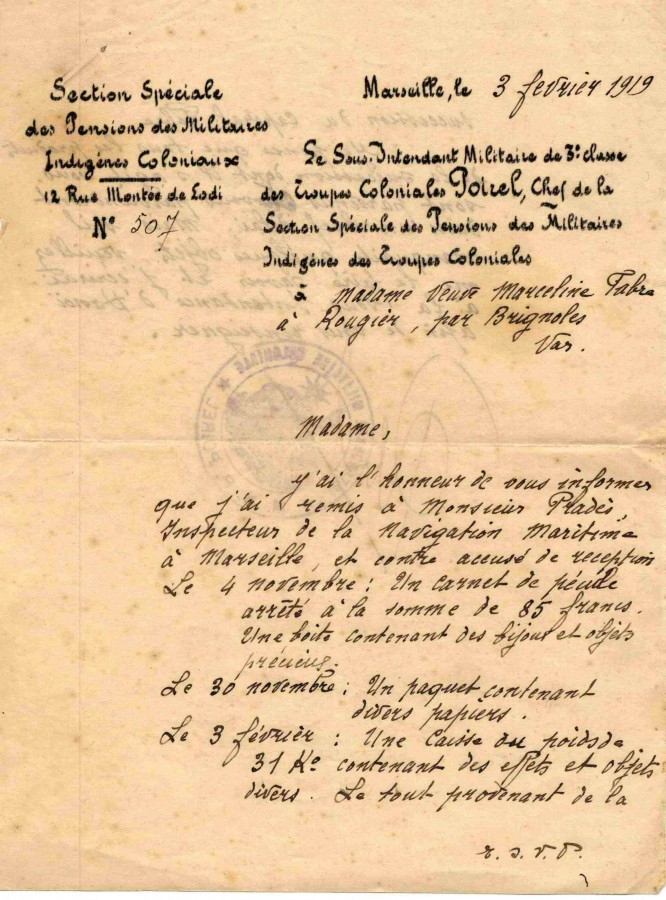 Section Spéciale
des Pensions des Militaires
Indigènes Coloniaux
12 Rue Montée de Lodi
N° 507
Marseille, le 3 fevrier 1919
Le Sous-Intendant Militaire de 3e classe
des Troupes Coloniales Poirel, Chef de la
Section Spéciale des Pensions des Militaires
Indigènes des Troupes Coloniales
à Madame Veuve Marceline Fabre
à Rougier, par Brignoles
Var.
Madame,
J'ai l'honneur de vous informer
que j'ai remis à Monsieur Pradès,
Inspecteur de la Navigation Maritime
à Marseille, et contre accusé de reception
Le 4 novembre : Un carnet de pécule
arrêté à la somme de 85 francs.
Une boite contenant des bijoux et objets
précieux.
Le 30 novembre : Un paquet contenant
divers papiers.
Le 3 février : Une Caisse du poids de
31 Ko contenant des effets et objets
divers. Le tout provenant de la
t. s. v. p.